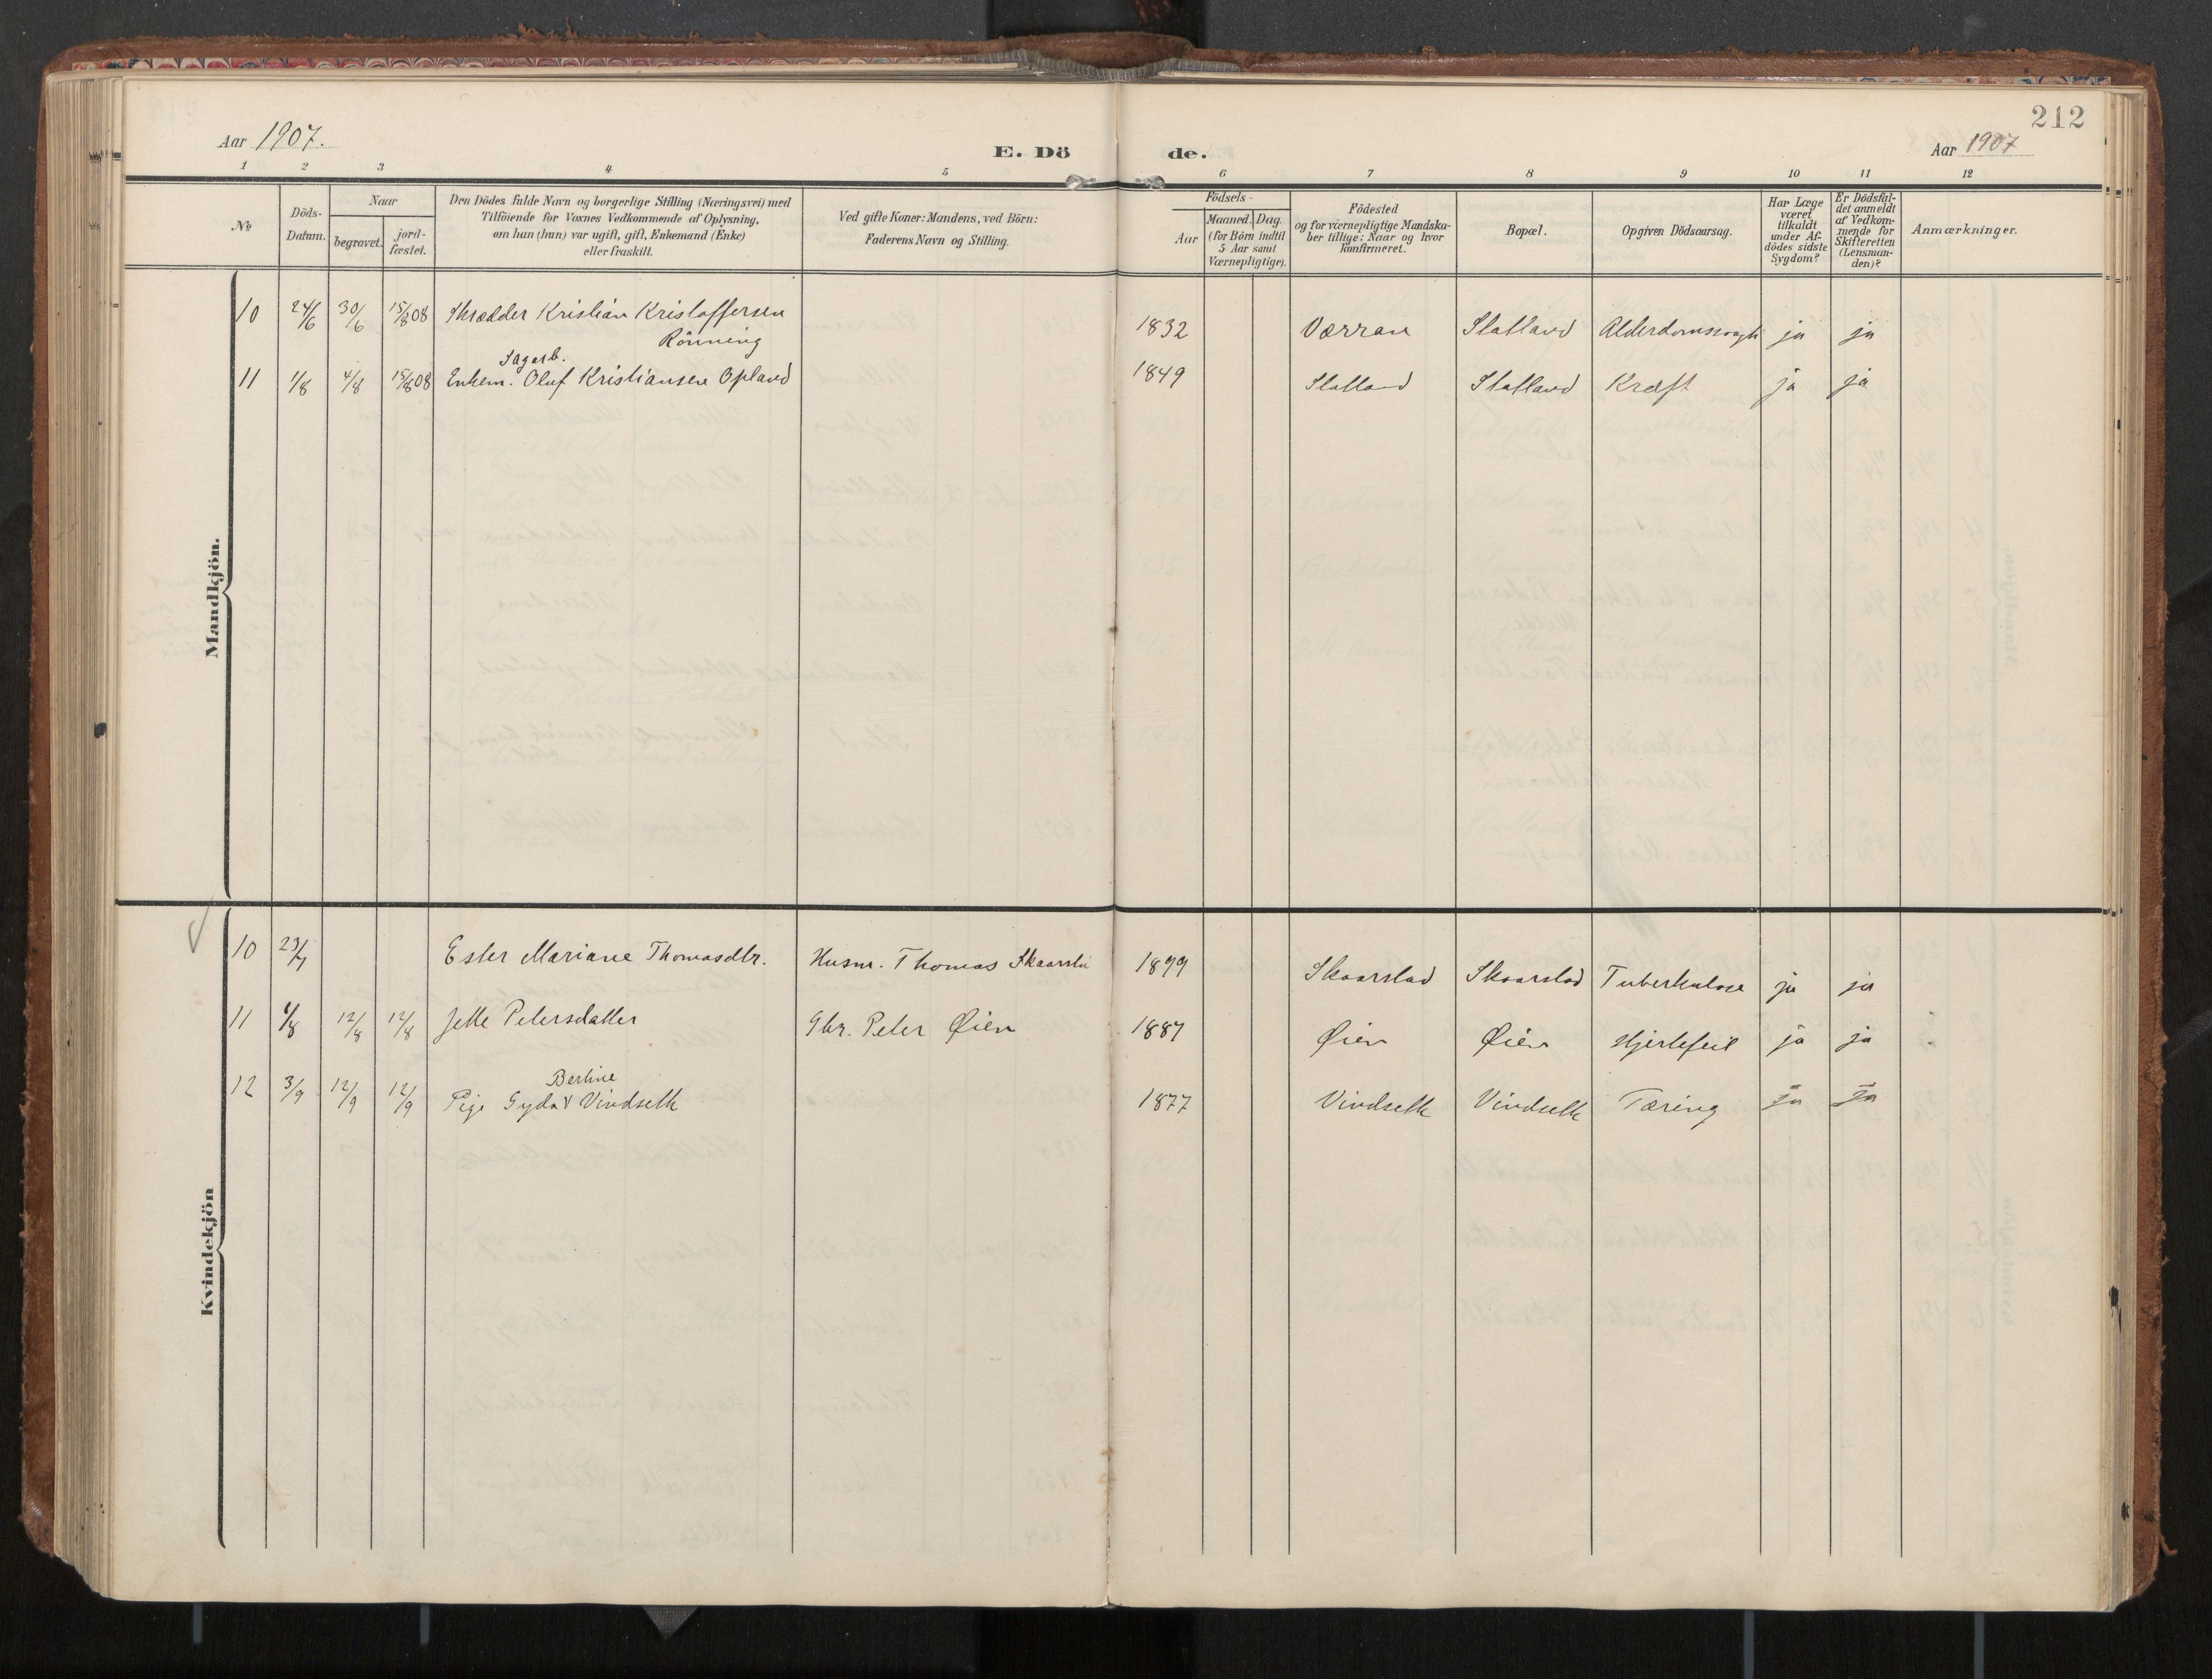 212
Aar 1907.
E. Dö de.
Aar 1907
1 2 3 4 5 6 7 8 9 10 11 12
No
Döds-Datum.
Naar
begravet.
jord-fæstet.
Den Dödes fulde Navn og borgerlige Stilling (Næringsvei) med
Tilföiende for Voxnes Vedkommende af Oplysning,
om han (hun) var ugift, gift, Enkemand (Enke)
eller fraskilt.
Ved gifte Koner: Mandens, ved Börn:
Faderens Navn og Stilling.
Födsels-
Aar
Maaned. Dag.
(for Börn indtil
5 Aar samt
Værnepligtige).
Födested
og for værnepligtige Mandska-
ber tillige: Naar og hvor
konfirmeret.
Bopæl.
Opgiven Dödsaarsag.
Har Læge
været
tilkaldt
under Af-
dödes sidste
Sygdom?
Er Dödsfal-
det anmeldt
af Vedkom-
mende for
Skifteretten
(Lensman-
den)?
Anmærkninger.
Mandkjön.
10 24/6 30/6 15/8 08 Skrædder Kristian Kristoffersen 1832 Værran Statland ja ja
Rönning
Sagarb.
11 1/8 4/8 15/8 08 Enkem. Oluf Kristiansen Opland 1849 Statland Statland Kræft ja ja
Kvindekjön
10 23/7 Ester Mariane Thomasdtr. Husm. Thomas 1899 Skaarstad Skaarstad Tuberkulose ja ja
11 4/8 12/8 12/8 Jette Petersdatter Gbr. Peter Øien 1887 Øien Øien Hjertefeil ja ja
Berline
12 3/9 12/9 12/9 Pige Gyda v Vindseth 1877 Vindseth Vindseth Tæring Ja Ja